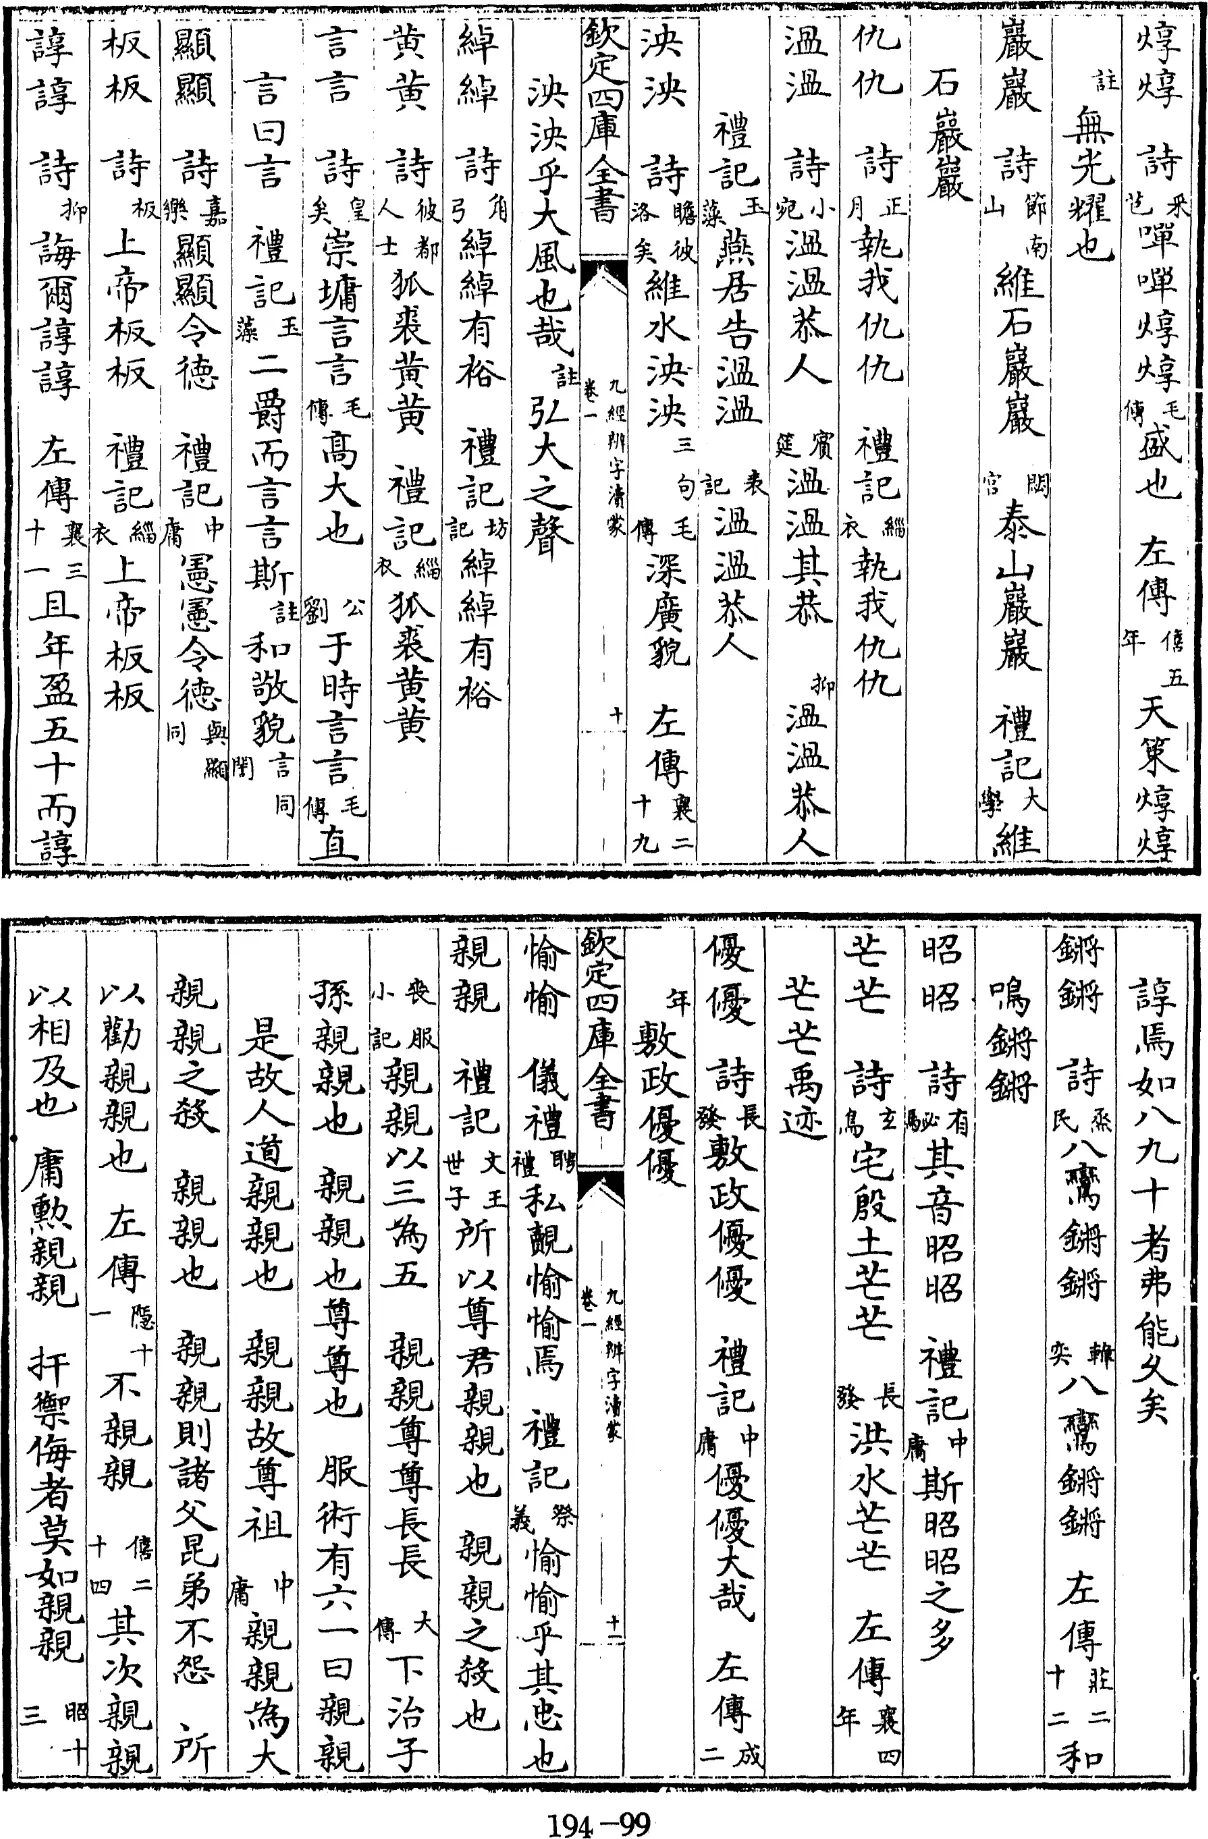 焞焞　詩采芑嘽嘽焞焞毛傳盛也　左傳僖五年天策焞焞
註無光耀也
巖巖　詩節南山維石巖巖　閟宮泰山巖巖　禮記大學維
石巖巖
仇仇　詩正月執我仇仇　禮記緇衣執我仇仇
溫溫　詩小宛溫溫恭人　賓筵溫溫其恭　抑溫溫恭人
禮記玉藻燕居告溫溫　表記溫溫恭人
泱泱　詩瞻彼洛矣維水泱泱三句毛傳深廣貌　左傳襄二十九
欽定四庫全書　九經辨字瀆蒙　卷一　十
泱泱乎大風也哉註弘大之聲
綽綽　詩角弓綽綽有裕　禮記坊記綽綽有裕
黃黃　詩彼都人士狐裘黃黃　禮記緇衣狐裘黃黃
言言　詩皇矣崇墉言言毛傳高大也　公劉于時言言毛傳直
言曰言　禮記玉藻二爵而言言斯註和敬貌言同誾
顯顯　詩嘉樂顯顯令德　禮記中庸憲憲令德與顯同
板板　詩板上帝板板　禮記緇衣上帝板板
諄諄　詩抑誨爾諄諄　左傳襄三十一且年盈五十而諄
諄焉如八九十者弗能久矣
鏘鏘　詩烝民八鸞鏘鏘　韓奕八鸞鏘鏘　左傳莊二十二和
鳴鏘鏘
昭昭　詩有駜其音昭昭　禮記中庸斯昭昭之多
芒芒　詩玄鳥宅殷土芒芒　長發洪水芒芒　左傳襄四年
芒芒禹迹
優優　詩長發敷政優優　禮記中庸優優大哉　左傳成二
年敷政優優
欽定四庫全書　九經辨字瀆蒙　卷一　十一
愉愉　儀禮聘禮私覿愉愉焉　禮記祭義愉愉乎其忠也
親親　禮記文王世子所以尊君親親也　親親之殺也
喪服小記親親以三為五　親親尊尊長長　大傳下治子
孫親親也　親親也尊尊也　服術有六一曰親親
是故人道親親也　親親故尊祖　中庸親親為大
親親之殺　親親也　親親則諸父昆弟不怨　所
以勸親親也　左傳隱十一不親親　僖二十四其次親親
以相及也　庸勲親親　扞禦侮者莫如親親　昭十三
194-99